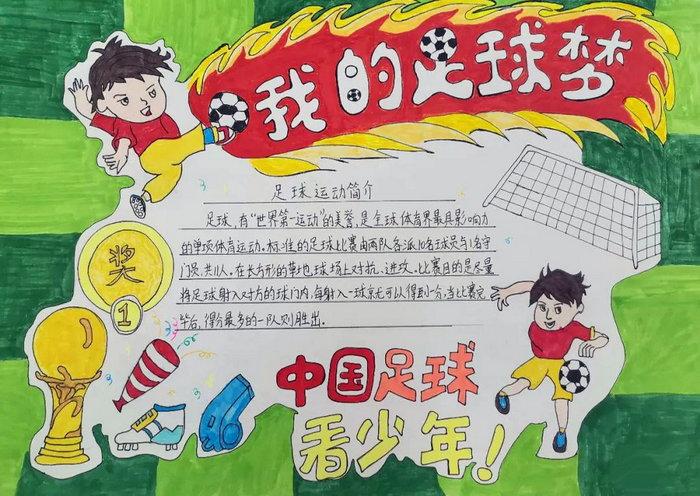 我的足球梦
足球运动简介
足球,有"世界第一运动"的美誉,是全球体育界最具影响力
的单项体育运动.标准的足球比赛由两队各派10名球员与1名守
门员,共11人.在长方形的草地球场上对抗、进攻.比赛目的是尽量
将足球射入对方的球门内,每射入一球就可以得到一分,当比赛完
毕后,得分最多的一队则胜出.
奖
1
中国足球
看少年!